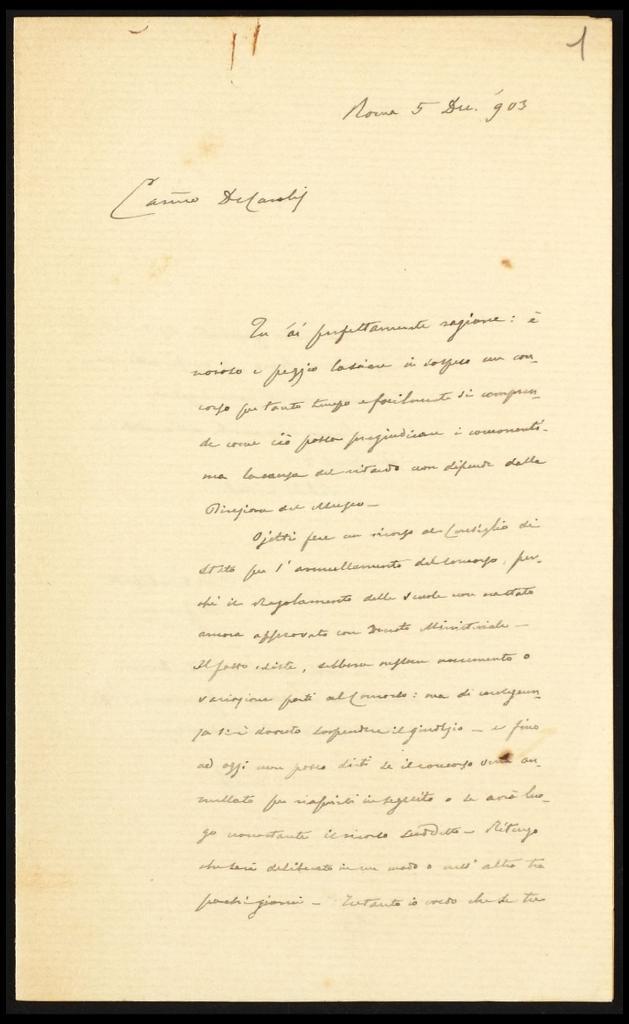 1
Roma 5 Dic. 903
Carmo DeCarolis
Tu ài perfettamente ragione: è
noioso e peggio lasciare in sospeso un con-
corso per tanto tempo e facilmente si compren-
de come ciò possa pregiudicare i concorrenti.
ma la causa del ritardo non dipende dalla
Direzione del Museo —
Ojetti fece un ricorso al Consiglio di
Stato per l'annullamento del concorso, per-
chè il Regolamento delle Scuole non era stato
ancora approvato con Decreto Ministeriale —
Il fatto esiste, sebbene nessun nocumento o
variazione porti al Concorso: ma di conseguen-
za si è dovuto sospendere il giudizio — e fino
ad oggi non posso dirti se il concorso verrà an-
nullato per riaprirsi in seguito o se avrà luo-
go nonostante il ricorso suddetto — Ritengo
che sarà deliberato in un modo o nell'altro tra
pochi giorni — Intanto io credo che se tu